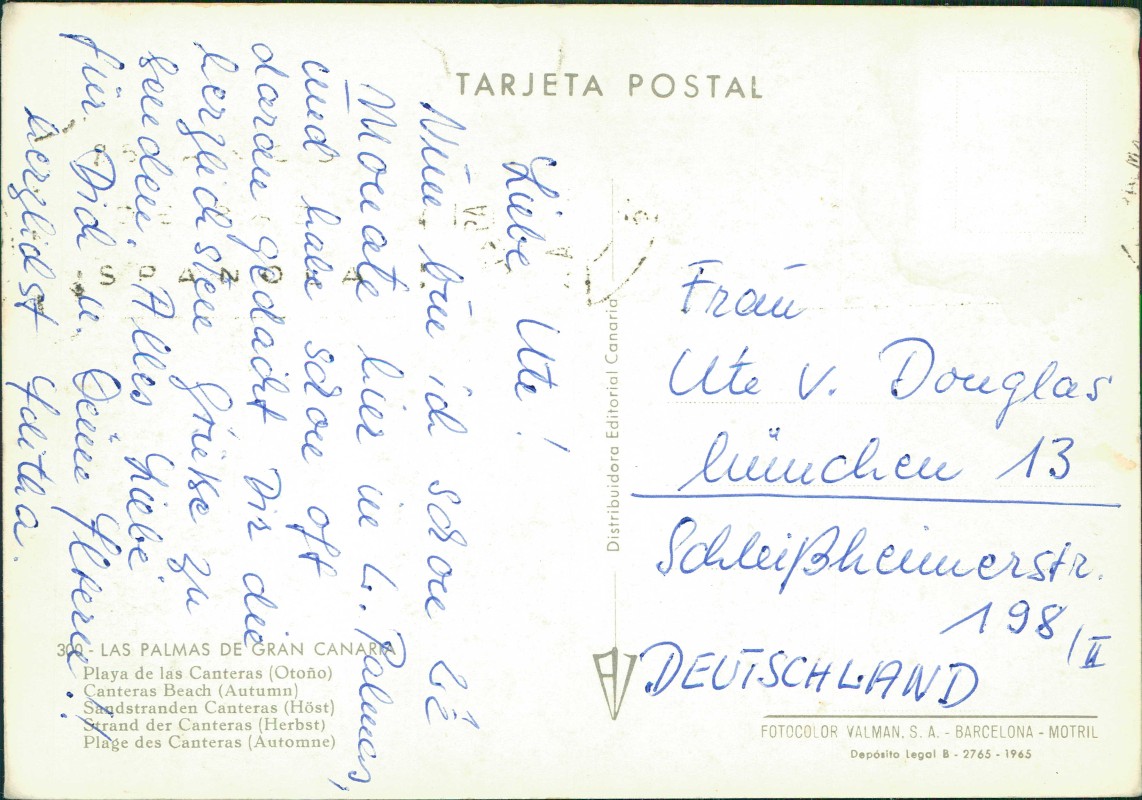 TARJETA POSTAL
Liebe Ute!
Nun bin ich schon
Monate hier in L. Palmas,
und habe schon oft
daran gedacht Dir die
herzlichsten Grüße zu
senden. Alles Liebe
für Dich u. Deine Eltern!
herzlichst
Frau
Ute v. Douglas
München 13
Schleißheimerstr.
198/II
DEUTSCHLAND
Distribuidora Editorial Canaria
ESPAÑOLA
300 - LAS PALMAS DE GRAN CANARIA
Playa de las Canteras (Otoño)
Canteras Beach (Autumn)
Sandstranden Canteras (Höst)
Strand der Canteras (Herbst)
Plage des Canteras (Automne)
FOTOCOLOR VALMAN, S. A. - BARCELONA - MOTRIL
Depósito Legal B - 2765 - 1965